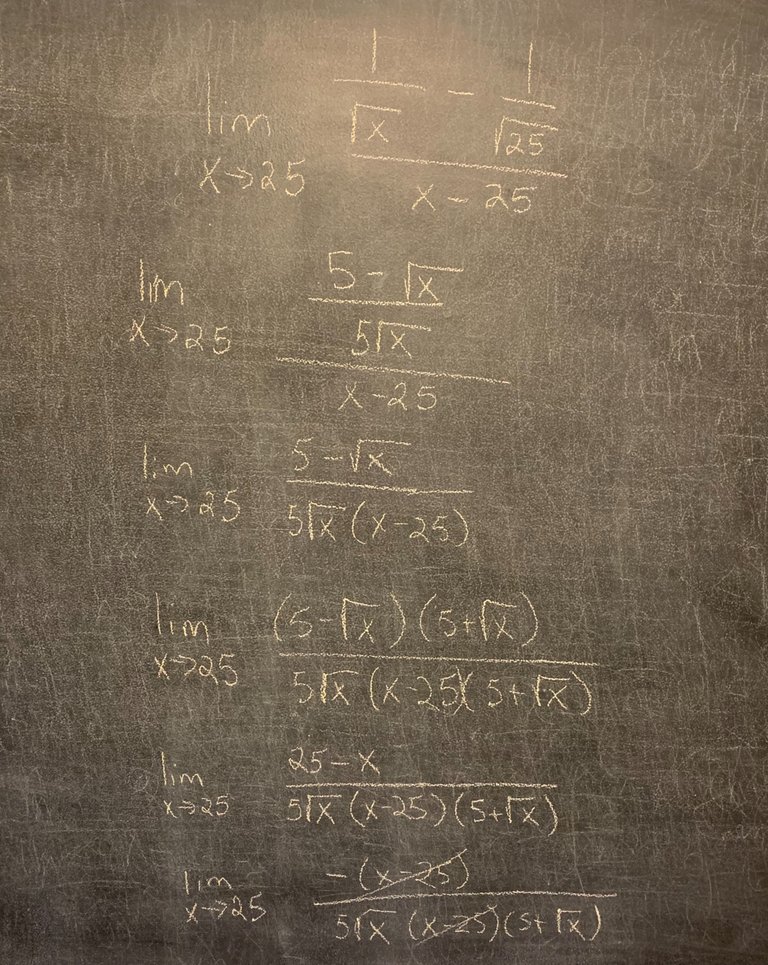 lim x→25 (1/√x - 1/√25)/(x - 25)
lim x→25 ((5 - √x)/(5√x))/(x - 25)
lim x→25 (5 - √x)/(5√x (x - 25))
lim x→25 ((5 - √x)(5 + √x))/(5√x (x - 25)(5 + √x))
lim x→25 (25 - x)/(5√x (x - 25)(5 + √x))
lim x→25 (-(x - 25))/(5√x (x - 25)(5 + √x))